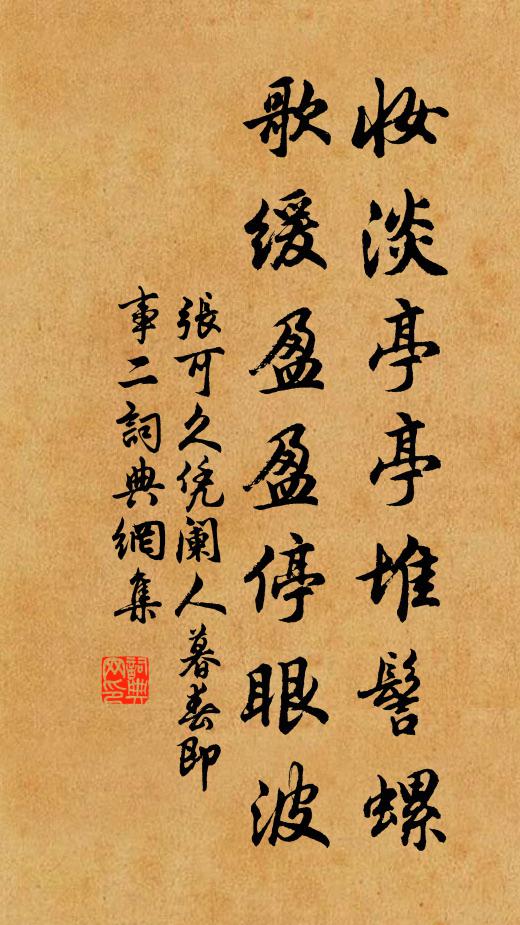 妝淡亭亭堆髻螺
歌緩盈盈停眼波
張可久凭闌人暮春即
事二詞典網集
詞典
网印